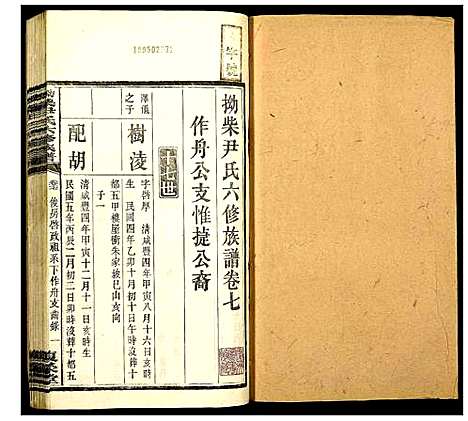 拗柴尹氏六修族譜卷七
作舟公支惟捷公裔
澤儀之子
樹淩
字啓厚 清咸豐四年甲寅八月十六日亥時
生 民國四年乙卯十月初十日午時沒葬十
都五甲樓屋衝朱家坡巳山亥向
子一
配胡
清咸豐四年甲寅十二月十一日亥時生
民國五年丙辰二月初二日卯時沒葬十都五
後房啓政祖系下作舟支齒錄 一